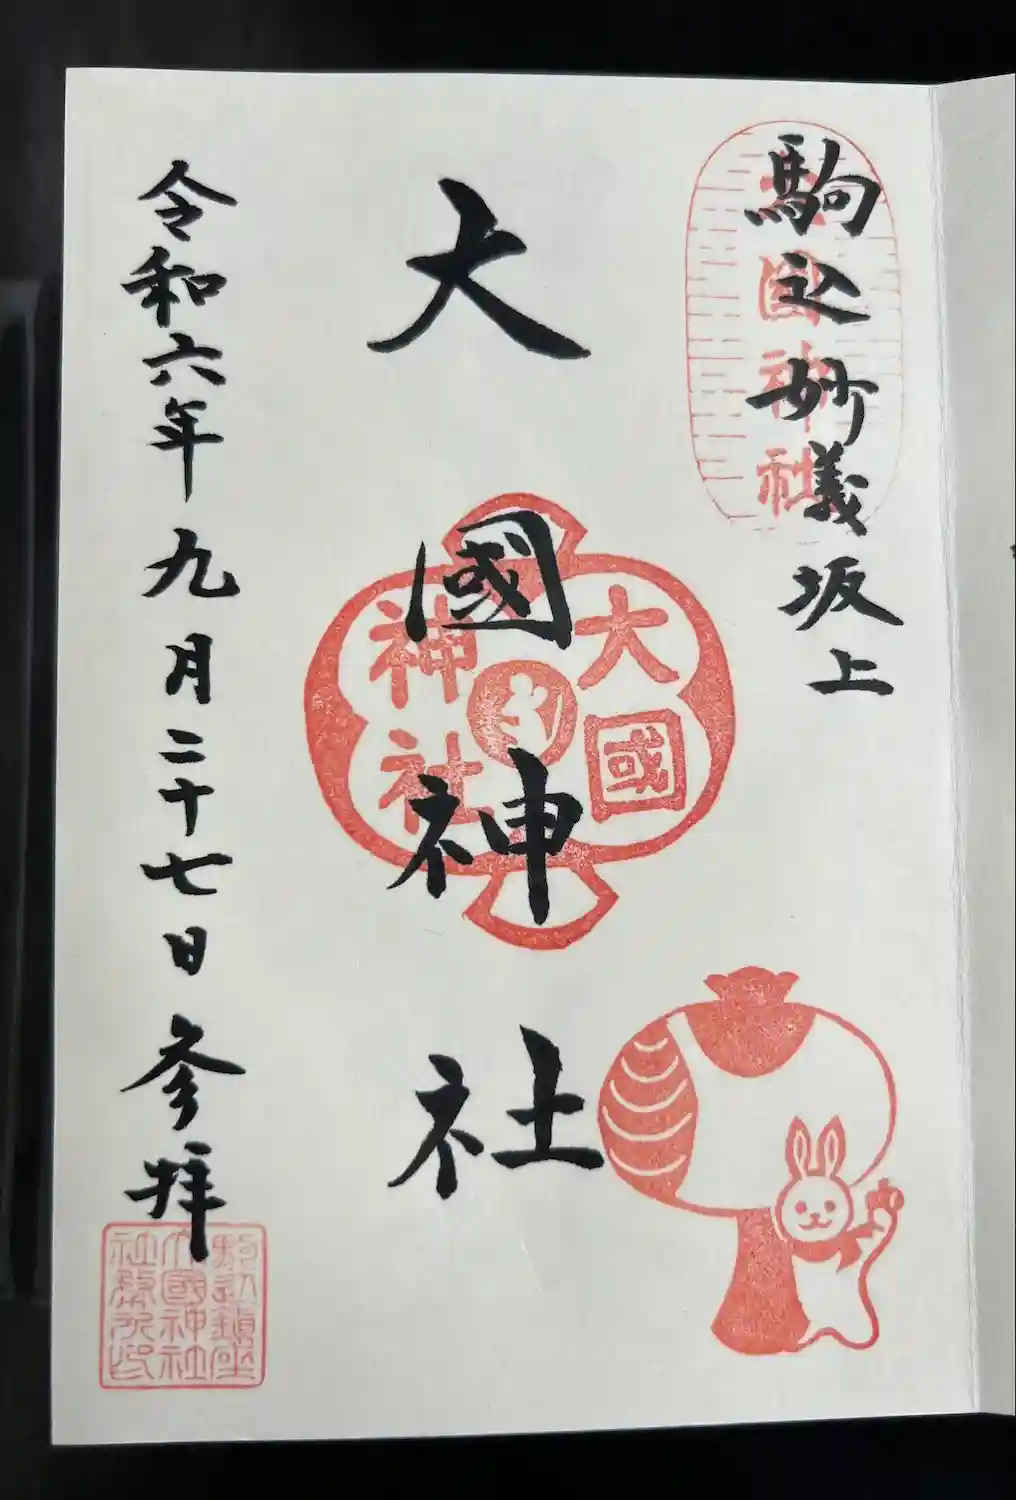 駒込妙義坂上
大國神社
大國神社
大國
神社
令和六年九月二十七日参拝
駒込鎮座
大國神社
社務所印